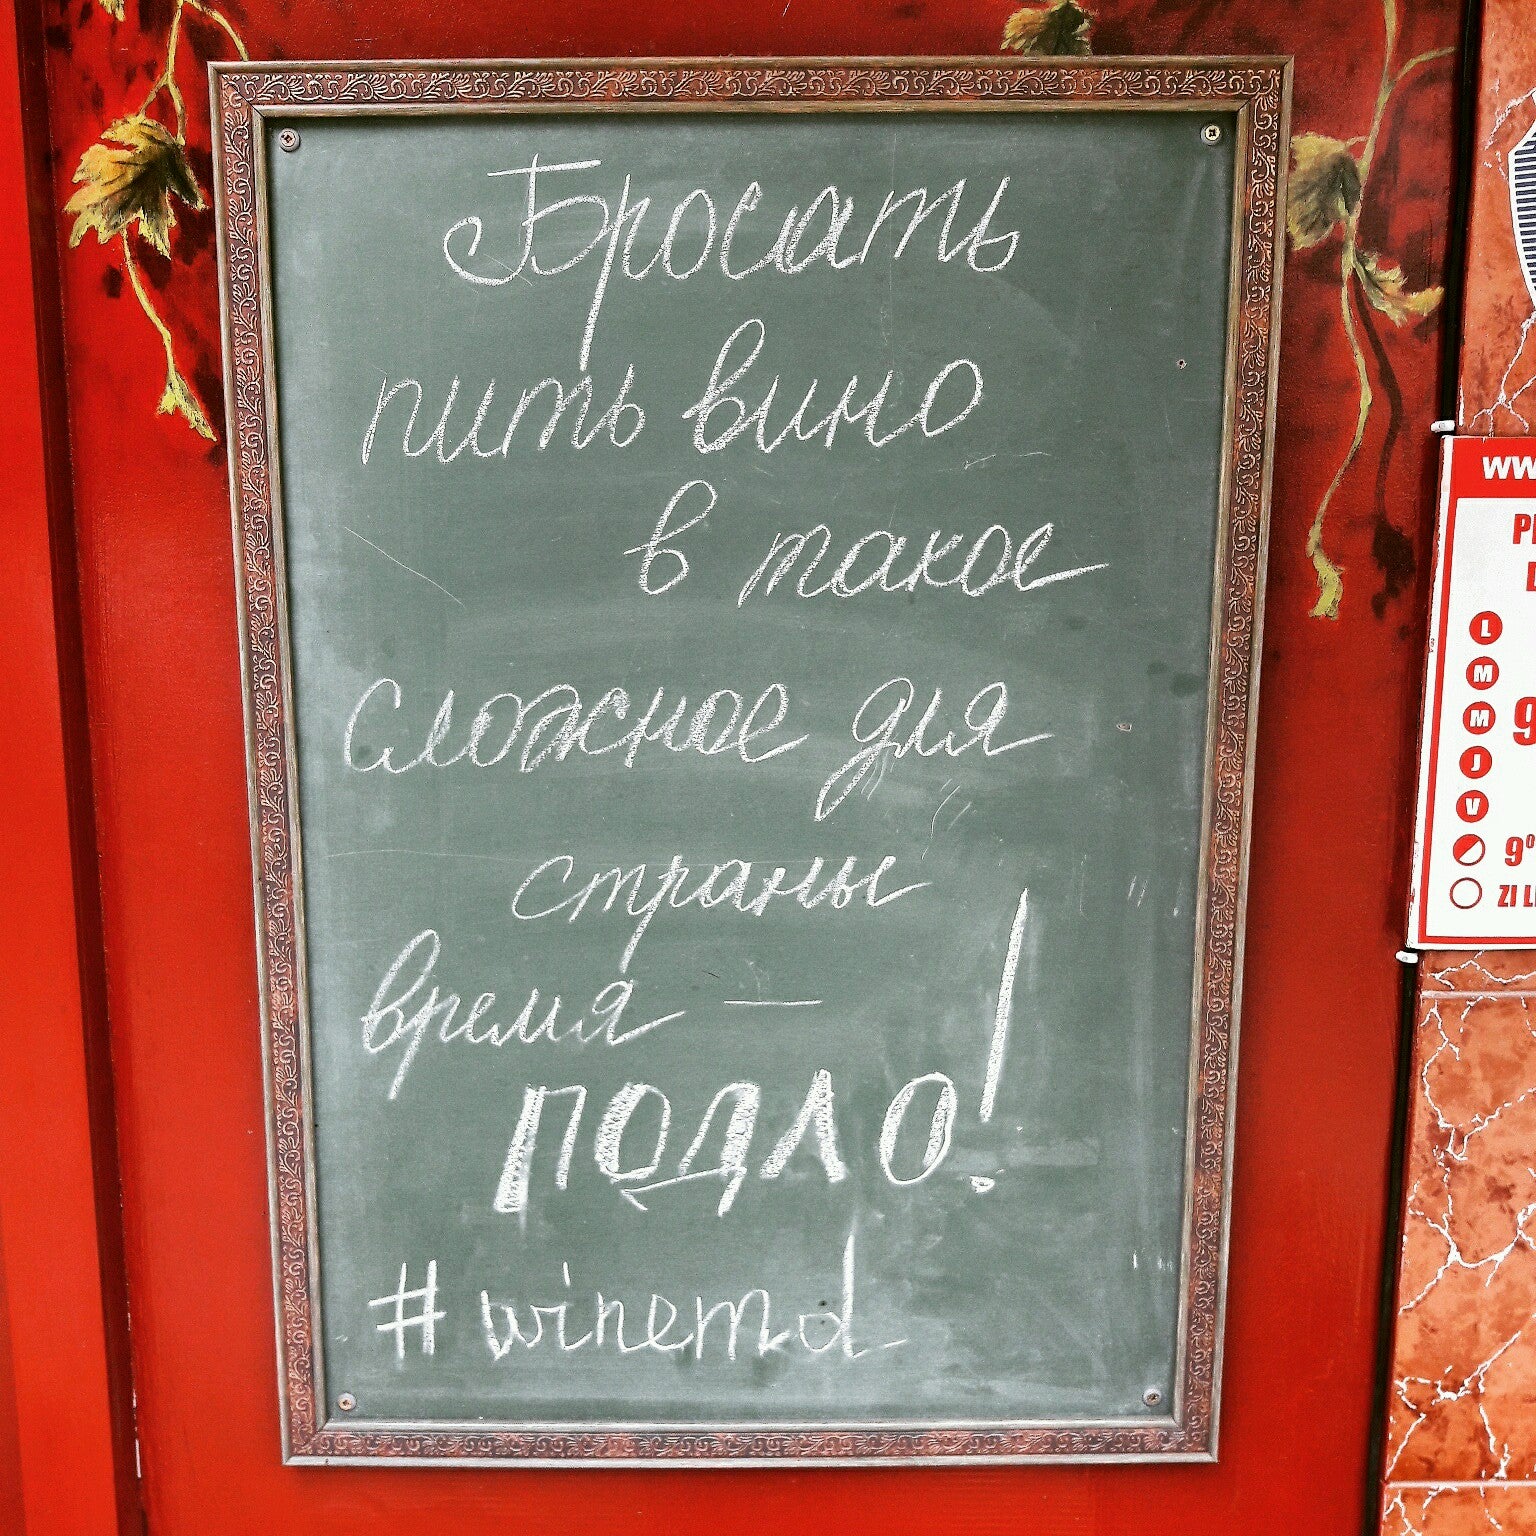 Бросать
пить вино
в такое
сложное для
страны
время —
ПОДЛО!
#winemd
L
M
M
J
V
9⁰